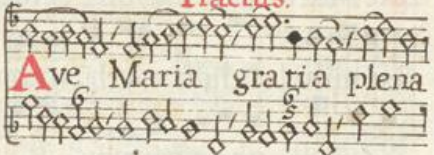 Tractus.
Ave Maria gratia plena
6 6
5